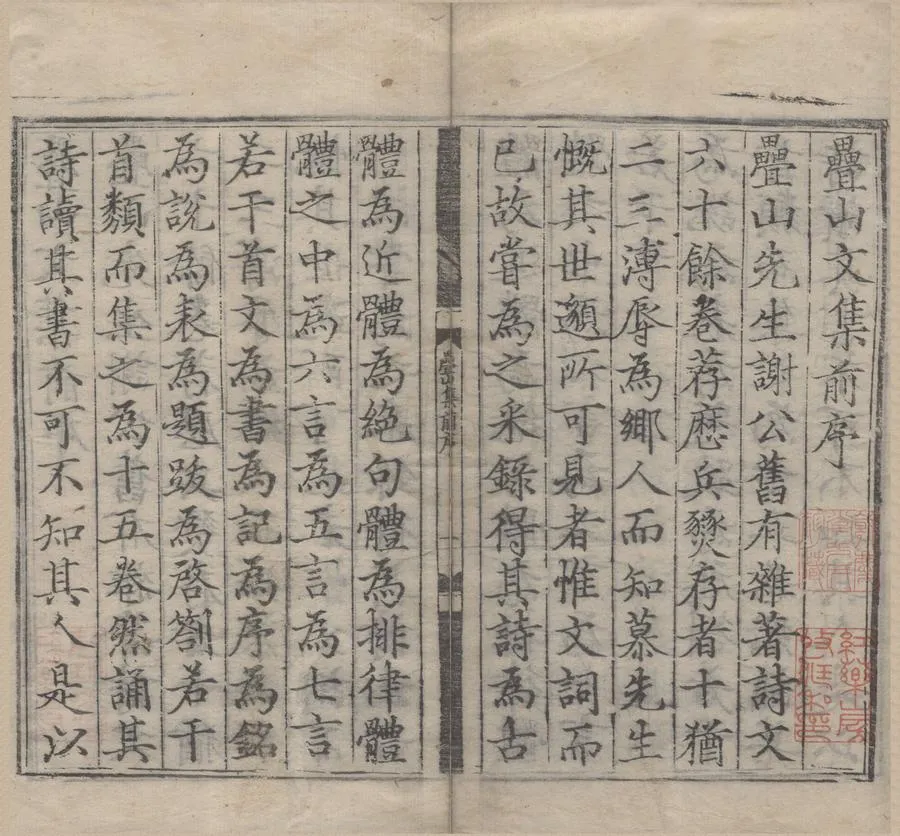 疊山文集前序
疊山先生謝公舊有雜著詩文
六十餘卷荐歷兵燹存者十猶
二三溥辱為鄉人而知慕先生
慨其世邈所可見者惟文詞而
已故嘗為之采錄得其詩為古
疊集前序
一
體為近體為絕句體為排律體
體之中為六言為五言為七言
若干首文為書為記為序為銘
為說為表為題跋為啓劄若干
首類而集之為十五卷然誦其
詩讀其書不可不知其人是以
紅藥山房